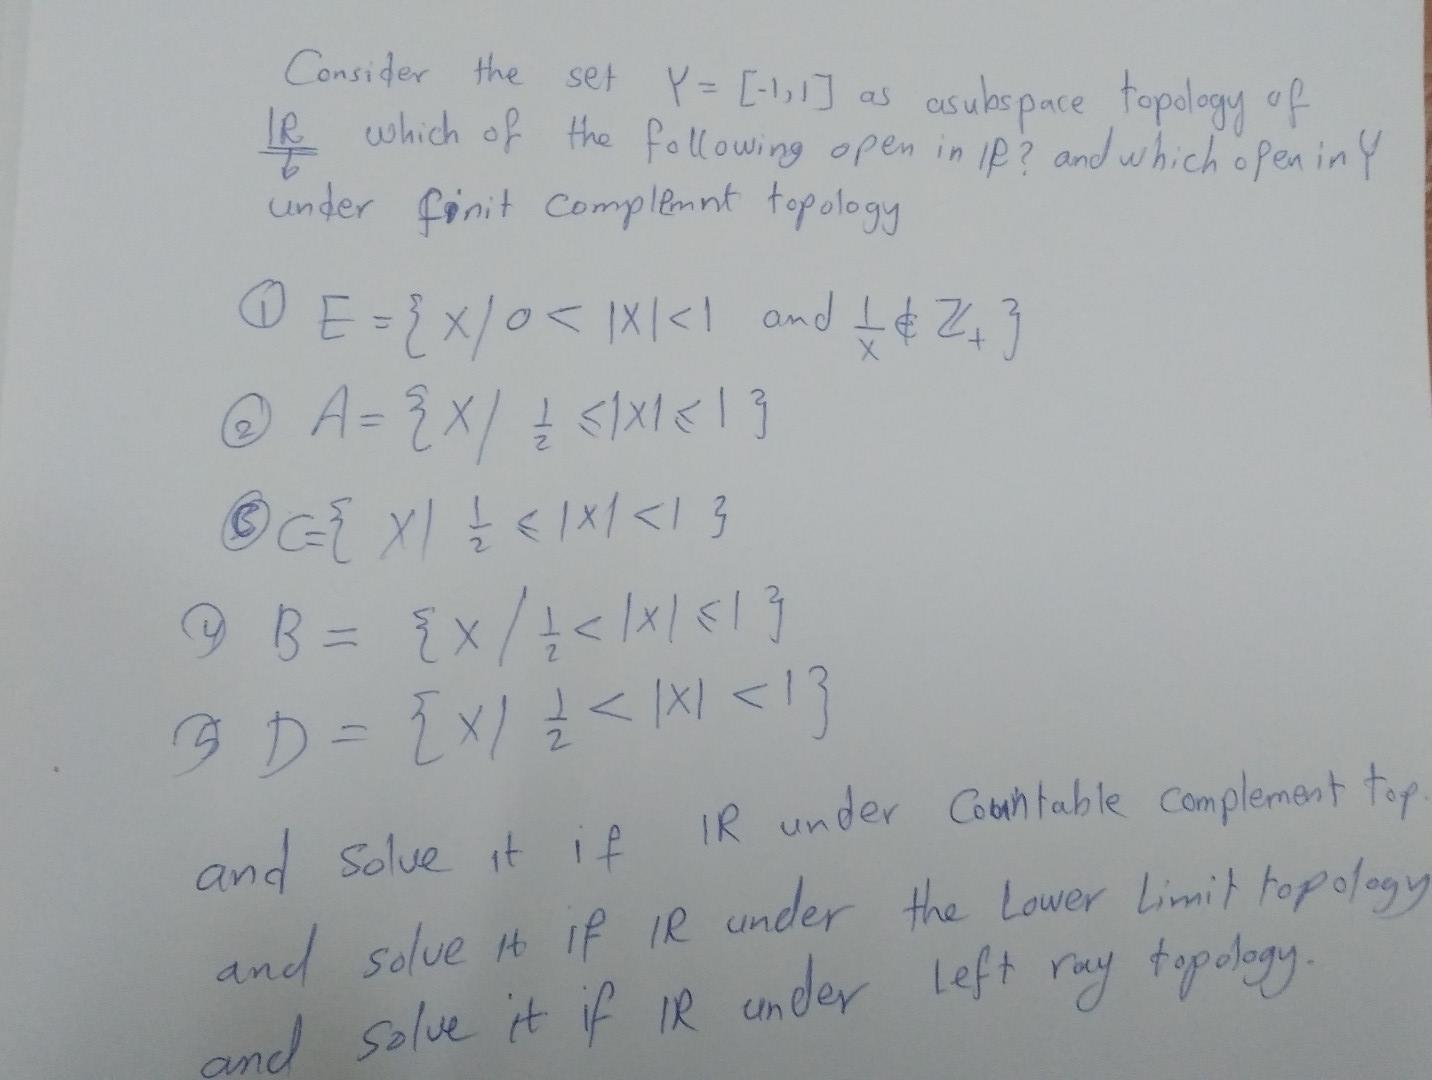 Consider the set Y = [-1,1] as asubspace topology of
IR which of the following open in IR? and which open in Y
under finit complemnt topology
① E = {x/0 < |x| < 1 and 1/x ∉ Z₊}
② A = {x/ 1/2 ≤ |x| ≤ 1}
③ C = {x| 1/2 ≤ |x| < 1}
④ B = {x/ 1/2 < |x| ≤ 1}
⑤ D = {x| 1/2 < |x| < 1}
and solve it if IR under Countable complement top.
and solve it if IR under the Lower Limit topology
and solve it if IR under left ray topology.